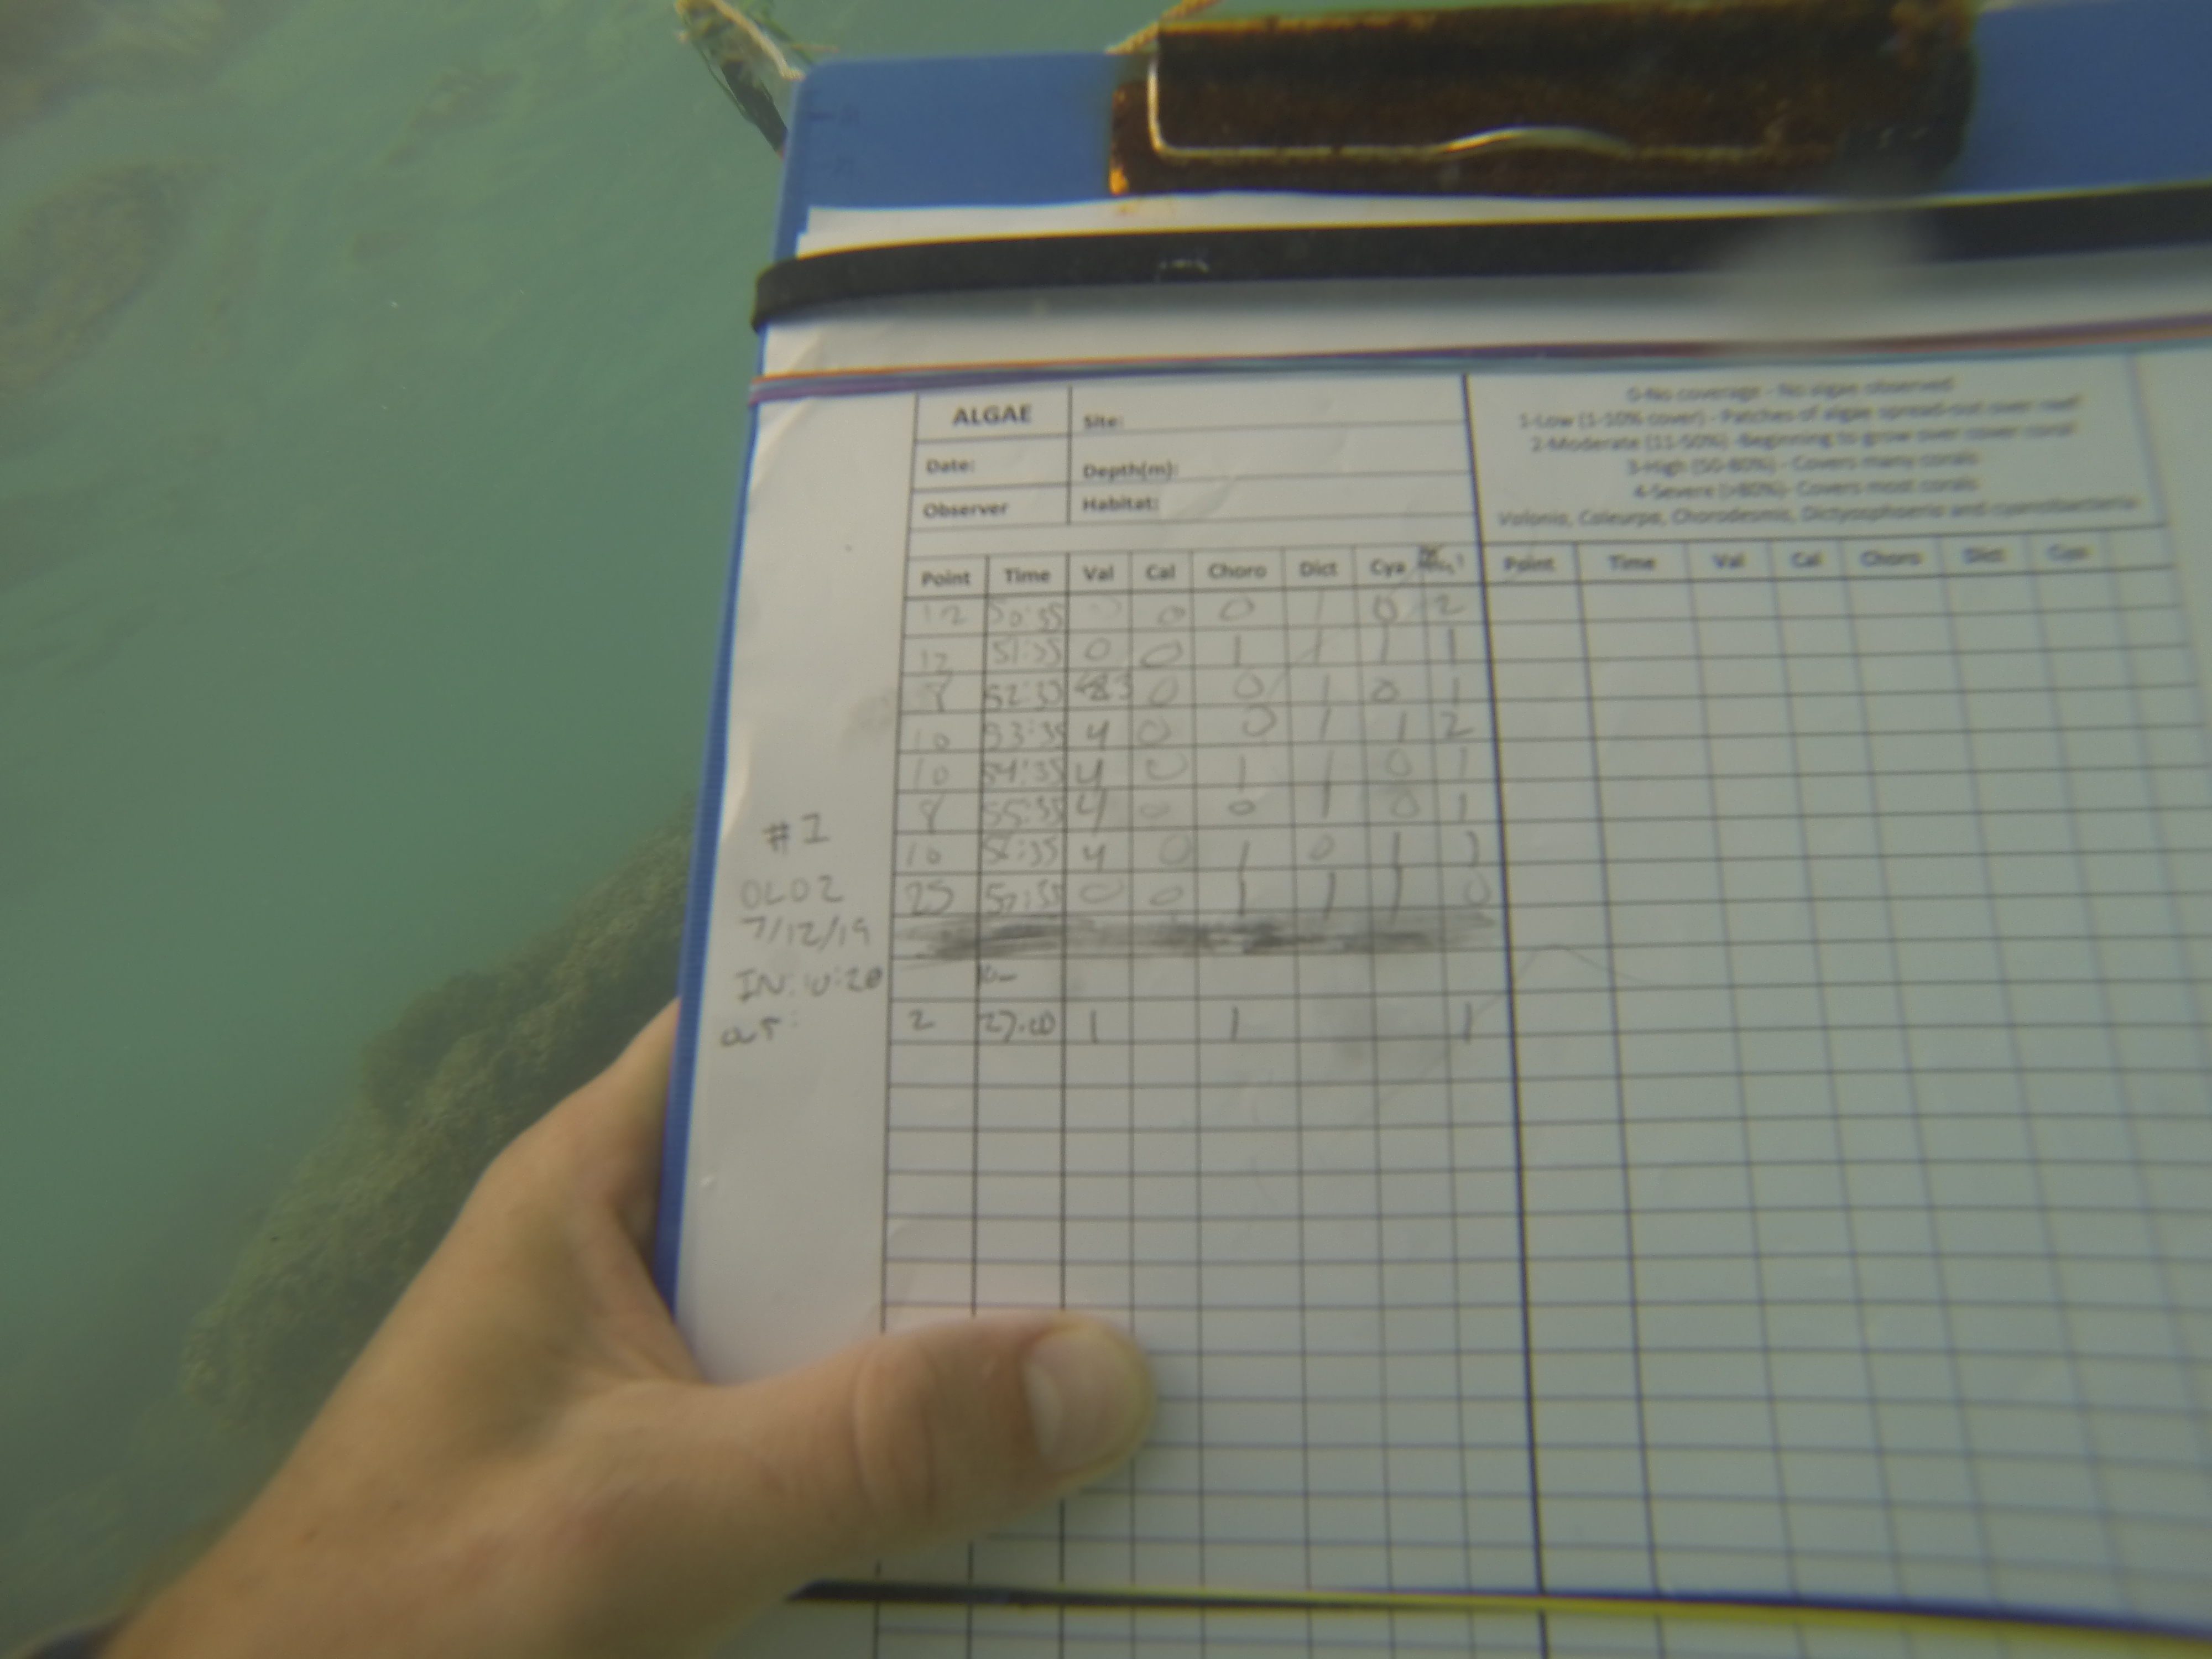 ALGAE Site:
Date: Depth(m):
Observer Habitat:
0-No coverage - No algae observed
1-Low (1-10% cover) - Patches of algae spread-out over reef
2-Moderate (11-50%) -Beginning to grow over cover coral
3-High (50-80%) - Covers many corals
4-Severe (>80%)- Covers most corals
Valonia, Caleurpa, Chorodesmis, Dictyosphaeria and cyanobacteria
Point Time Val Cal Choro Dict Cya Point Time Val Cal Choro Dict Cya
12 50:35 0 0 1 0 2
12 51:35 0 0 1 1 1 1
52:35 0 0 1 0 1
10 53:35 4 0 0 1 1 2
10 54:35 4 0 1 1 0 1
55:35 4 0 0 1 0 1
10 56:35 4 0 1 0 1 1
25 57:35 0 0 1 1 1 0
2 27:00 1 1 1
#1
OLO2
7/12/19
IN: